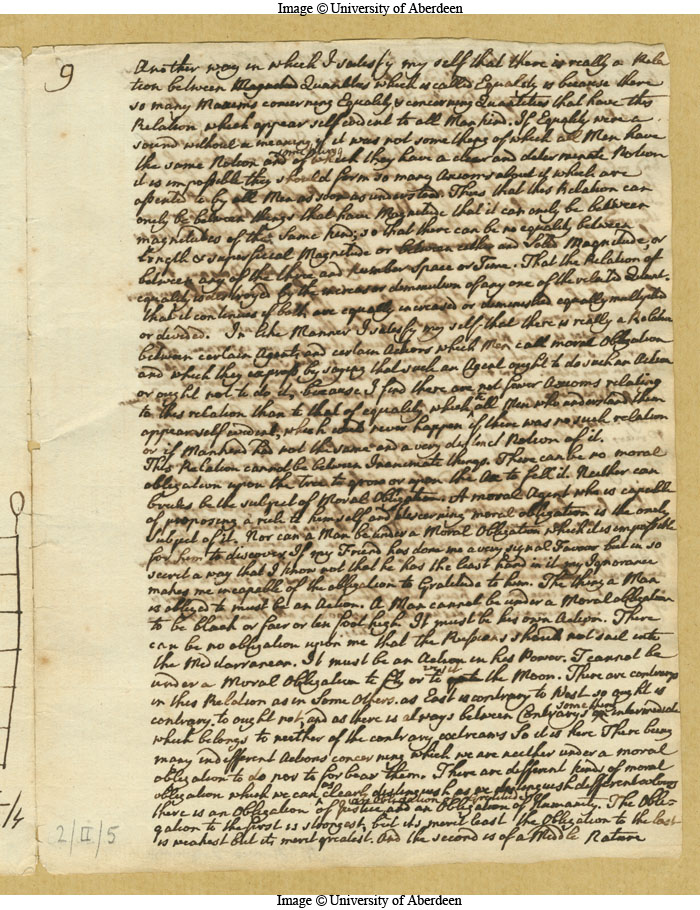 Image © University of Aberdeen
9
Another way in which I satisfy my self that there is really a Rela
tion between Magnitudes Quantities which is called Equality is because there
so many Maxims concerning Equality & concerning Quantities that have this
Relation which appear self evident to all Mankind. If Equality were a
sound without a meaning, if it was not some thing of which all Men have
the same Notion and of which they have a clear and determinate Notion
it is impossible they should form so many Axioms about it which are
assented to by all Men as soon as understood. Thus that this Relation can
only be between things that have Magnitude that it can only be between
magnitudes of the same kind; so that there can be no equality between
Length & superficial Magnitude or between either and Solid Magnitude, or
between any of the three and Number Space or Time. That the Relation of
equality is destroyed by the increase or diminution of any one of the related Quant.
that it continues if both are equally increased or diminished equally multiplied
or divided. In like Manner I satisfy my self that there is really a Relation
between certain Agents and certain Actions which Men call moral Obligation
and which they express by saying that such an Agent ought to do such an Action
or ought not to do it, because I find there are not fewer Axioms relating
to this relation than to that of equality which to all Men who understand them
appear self evident, which could never happen if there was no such relation
or if Mankind had not the same and a very distinct Notion of it.
This Relation cannot be between Inanimate things. There can be no moral
obligation upon the Tree to grow or upon the Axe to fell it. Neither can
brutes be the subject of Moral Obligation. A moral Agent who is capable
of proposing a rule to himself and discerning moral obligation is the onely
subject of it. Nor can a Man be under a Moral Obligation which it is impossible
for him to discover. If my Friend has done me a very signal Favour but in so
secret a way that I know not that he has the least hand in it my Ignorance
makes me incapable of the obligation to Gratitude to him. The thing a Man
is obliged to must be an Action. A Man cannot be under a Moral obligation
to be black or fair or ten foot high. It must be his own Action. There
can be no obligation upon me that the Russians should not sail into
the Midarranean. It must be an Action in his Power. I cannot be
under a Moral Obligation to fly or to visit the Moon. There are contrarys
in this Relation as in some Others. as East is contrary to West so ought is
contrary to ought not, and as there is always between Contrarys something intermediate
which belongs to neither of the contrary extreams So it is here There being
many indifferent Actions concerning which we are neither under a moral
obligation to do nor to forbear them. There are different kinds of moral
obligation which we can as clearly distinguish as we distinguish different colours
there is an Obligation of Justice an obligation of Gratitude and an Obligation of Humanity. The Obli-
gation to the first is strongest, but its merit least the Obligation to the last
is weakest but its merit greatest. And the second is of a Middle Nature
2/II/5
Image © University of Aberdeen